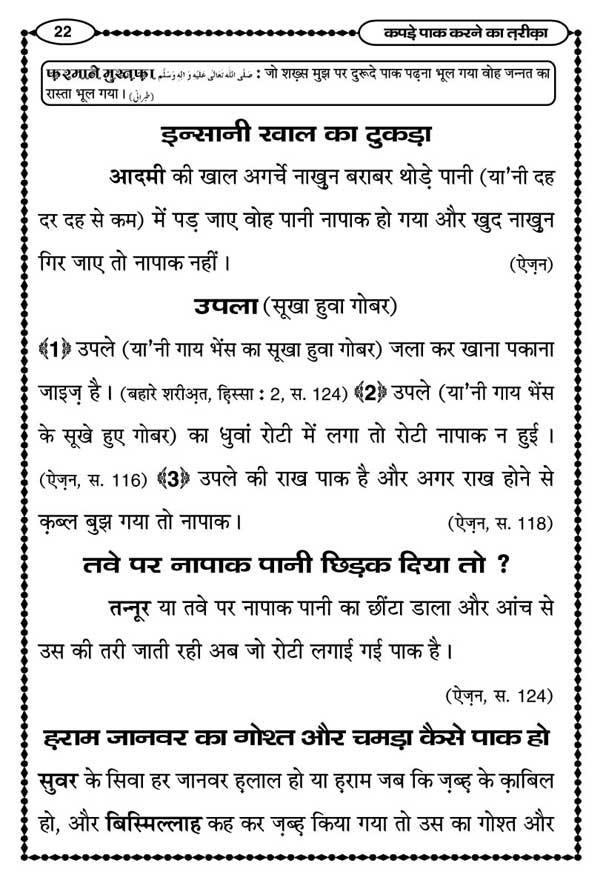 22
कपड़े पाक करने का त़रीक़ा
फ़रमाने मुस्त़फ़ा صَلَّى اللّٰهُ تَعَالٰى عَلَيْهِ وَاٰلِهٖ وَسَلَّم : जो शख़्स मुझ पर दुरूदे पाक पढ़ना भूल गया वोह जन्नत का
रास्ता भूल गया । (طبرانی)
इन्सानी खाल का टुकड़ा
आदमी की खाल अगर्चे नाख़ुन बराबर थोड़े पानी (या'नी दह
दर दह से कम) में पड़ जाए वोह पानी नापाक हो गया और खुद नाख़ुन
गिर जाए तो नापाक नहीं । (ऐज़न)
उपला (सूखा हुवा गोबर)
﴾1﴿ उपले (या'नी गाय भेंस का सूखा हुवा गोबर) जला कर खाना पकाना
जाइज़ है । (बहारे शरीअ़त, हिस्सा : 2, स. 124) ﴾2﴿ उपले (या'नी गाय भेंस
के सूखे हुए गोबर) का धुवां रोटी में लगा तो रोटी नापाक न हुई ।
(ऐज़न, स. 116) ﴾3﴿ उपले की राख पाक है और अगर राख होने से
क़ब्ल बुझ गया तो नापाक । (ऐज़न, स. 118)
तवे पर नापाक पानी छिड़क दिया तो ?
तन्नूर या तवे पर नापाक पानी का छींटा डाला और आंच से
उस की तरी जाती रही अब जो रोटी लगाई गई पाक है ।
(ऐज़न, स. 124)
ह़राम जानवर का गोश्त और चमड़ा कैसे पाक हो
सुवर के सिवा हर जानवर ह़लाल हो या ह़राम जब कि ज़ब्ह़ के क़ाबिल
हो, और बिस्मिल्लाह कह कर ज़ब्ह़ किया गया तो उस का गोश्त और